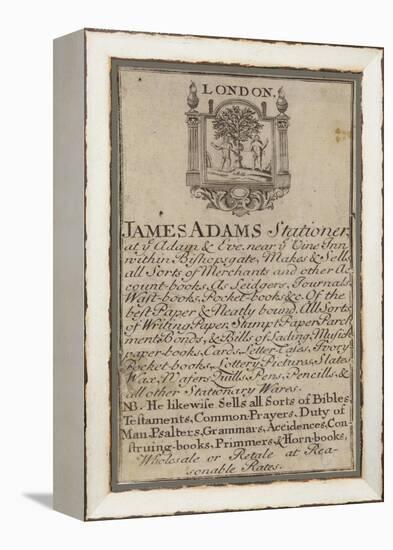 LONDON.
JAMES ADAMS Stationer
at yͤ Adam & Eve, near yͤ Vine Inn
within Bishopsgate, Makes & Sells
all Sorts of Merchants and other Ac
count-books, As Leidgers, Journals,
Wast-books, Pocket-books &c. Of the
best Paper & Neatly bound, All Sorts
of Writing Paper, Stampt Paper, Parch
ments, Bonds, & Bills of Lading, Musick
paper-books, Cards, Letter-Cases, Ivory
Pocket-books, Lottery Pictures, Slates
Wax, Wafers, Quills, Pens, Pencills, &
all other Stationary Wares.
NB. He likewise Sells all Sorts of Bibles,
Testaments, Common-Prayers, Duty of
Man, Psalters, Grammars, Accidences, Con
struing-books, Primmers, & Horn-books,
Wholesale or Retale at Rea-
sonable Rates.